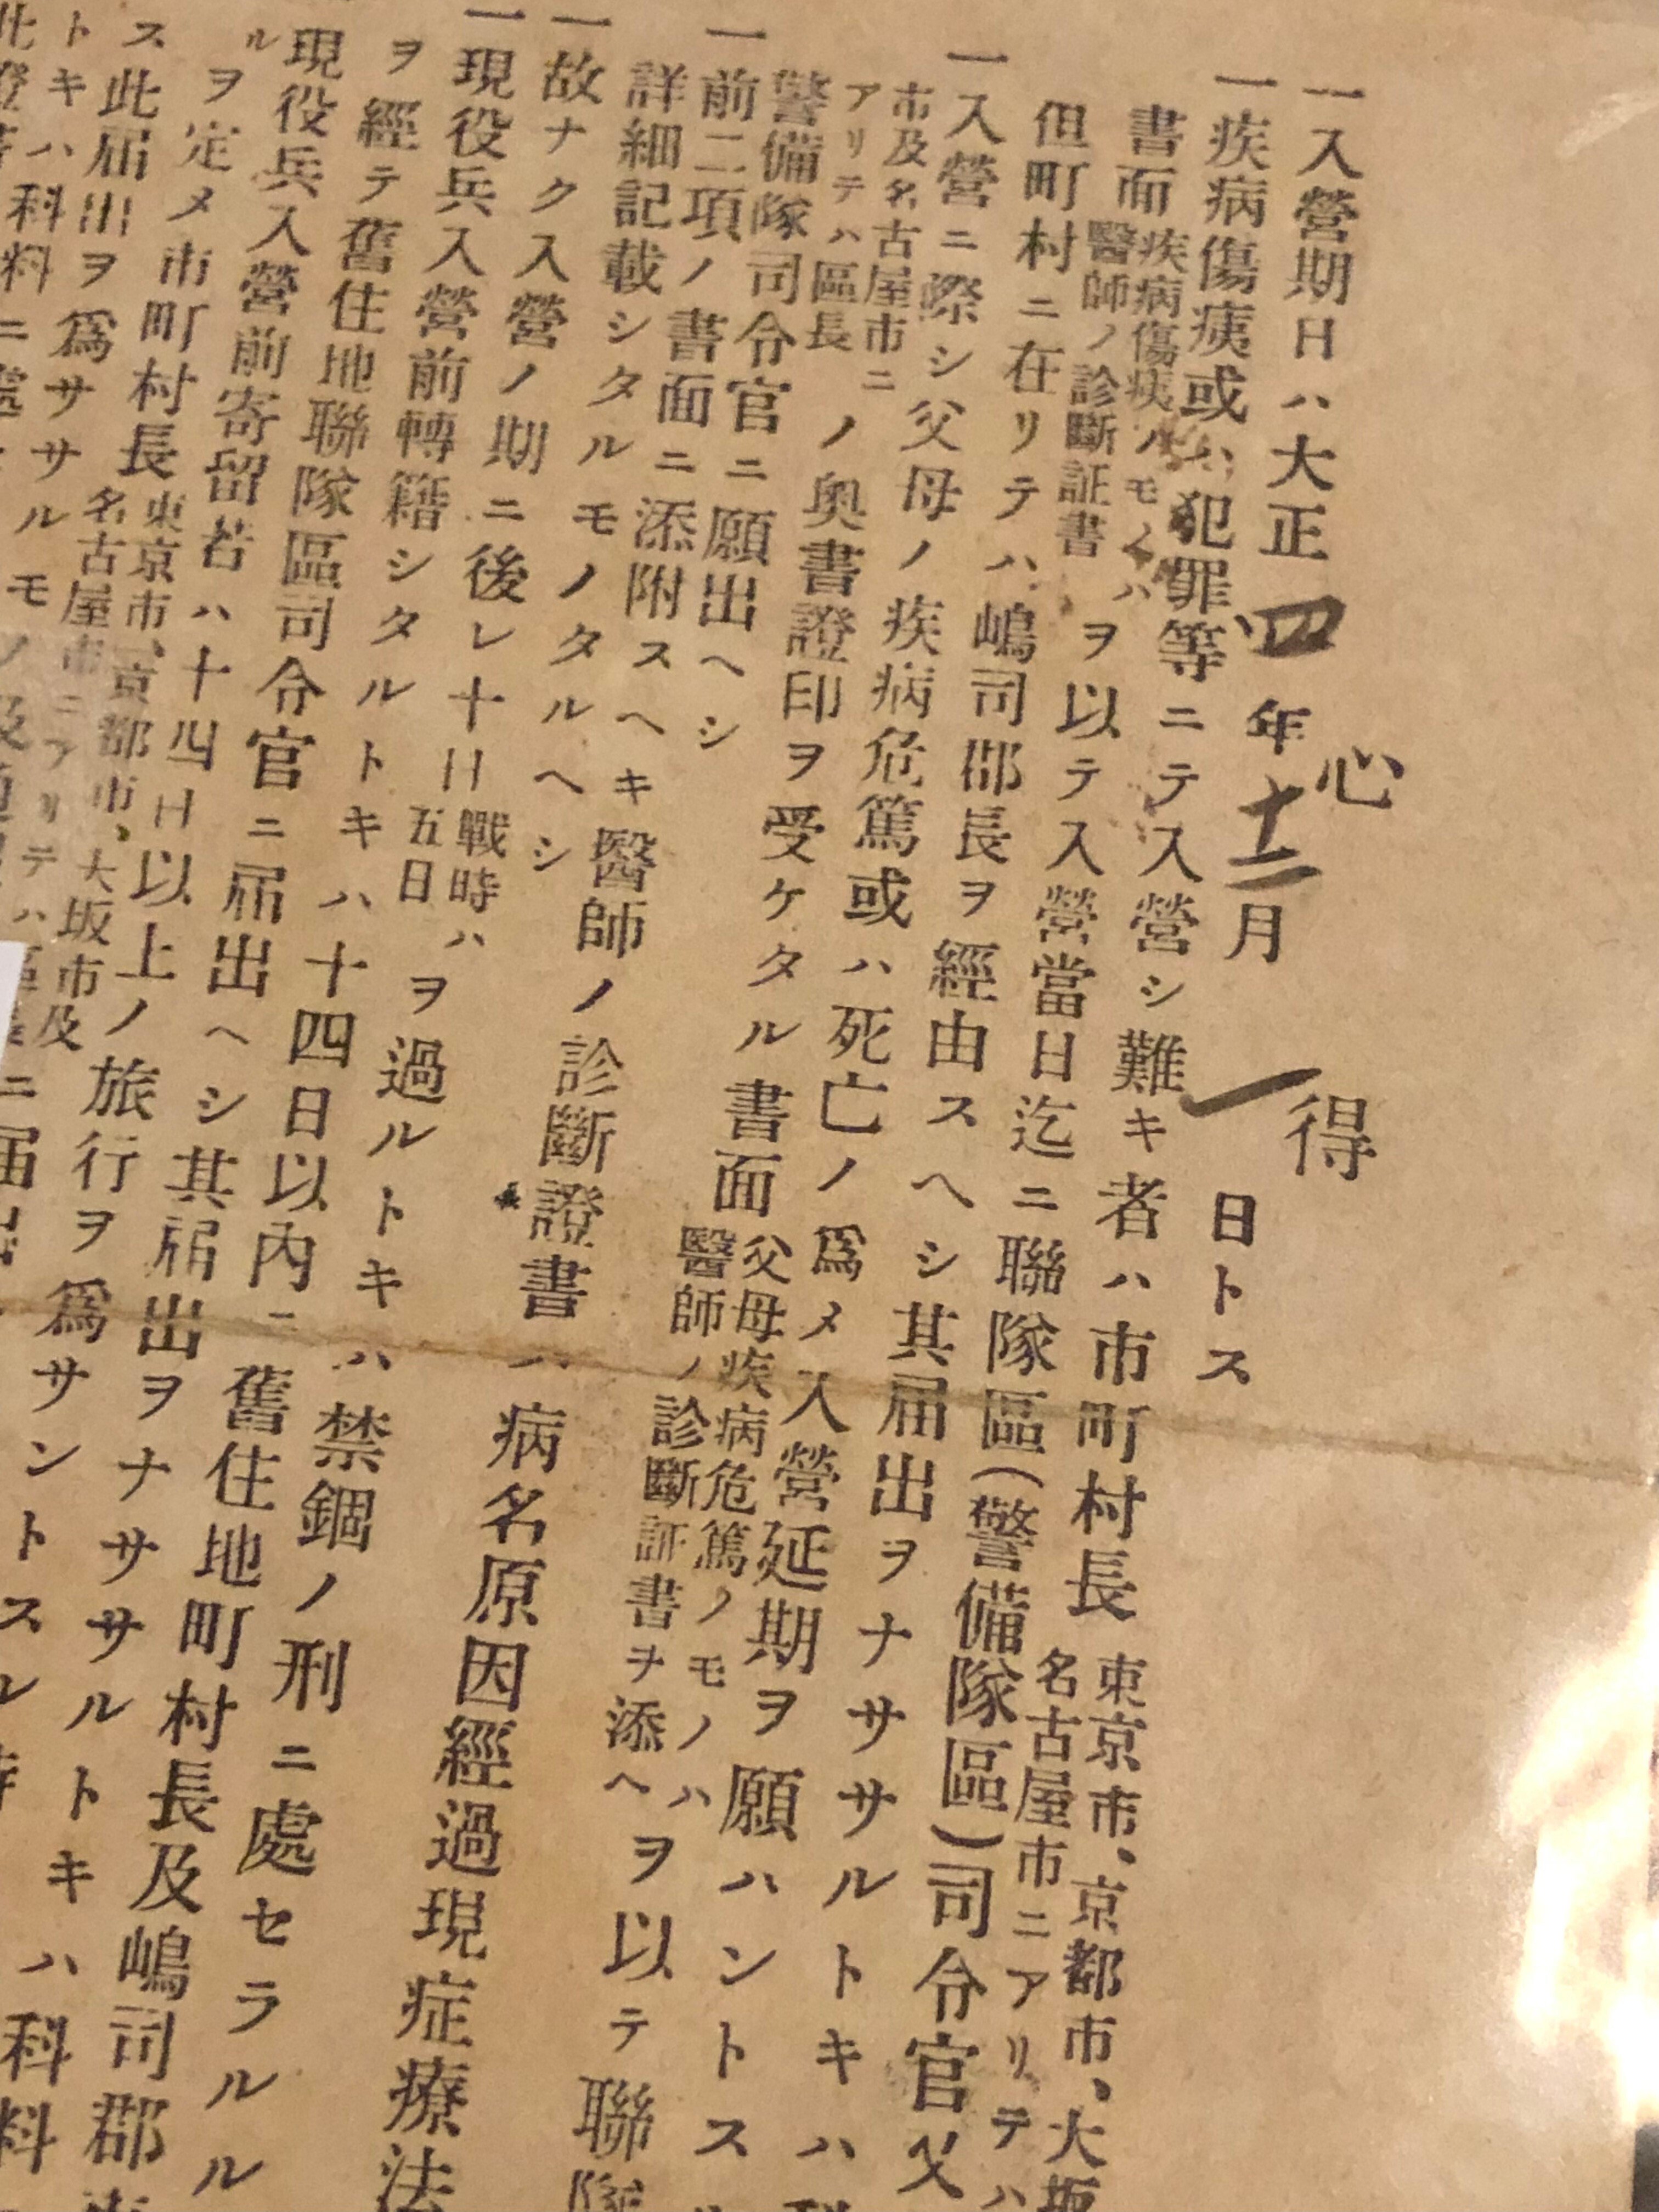 心得
一入營期日ハ大正四年十二月一日トス
一疾病傷痍或ハ犯罪等ニテ入營シ難キ者ハ市町村長
東京市、京都市、大坂
名古屋市ニアリテハ
書面
疾病傷痍ノモノハ
醫師ノ診斷証書
ヲ以テ入營當日迄ニ聯隊區(警備隊區)司令官
但町村ニ在リテハ嶋司郡長ヲ經由スヘシ其届出ヲナササルトキハ
一入營ニ際シ父母ノ疾病危篤或ハ死亡ノ爲メ入營延期ヲ願ハントス
市及名古屋市ニ
アリテハ區長
ノ奥書證印ヲ受ケタル書面
父母疾病危篤ノモノハ
醫師ノ診斷証書ヲ添ヘ
ヲ以テ聯隊
警備隊司令官ニ願出ヘシ
一前二項ノ書面ニ添附スヘキ醫師ノ診斷證書ハ病名原因經過現症療法
詳細記載シタルモノタルヘシ
一故ナク入營ノ期ニ後レ十日
戰時ハ
五日
ヲ過ルトキハ禁錮ノ刑ニ處セラルル
一現役兵入營前轉籍シタルトキハ十四日以內ニ舊住地町村長及嶋司郡
ヲ經テ舊住地聯隊區司令官ニ届出ヘシ其届出ヲナササルトキハ科料
現役兵入營前寄留若ハ十四日以上ノ旅行ヲ爲サントスル
ヲ定メ市町村長
東京市、京都市、大坂市及
名古屋市ニアリテハ區長
ニ届出
ス此届出ヲ爲ササルモノ及
トキハ科料ニ處